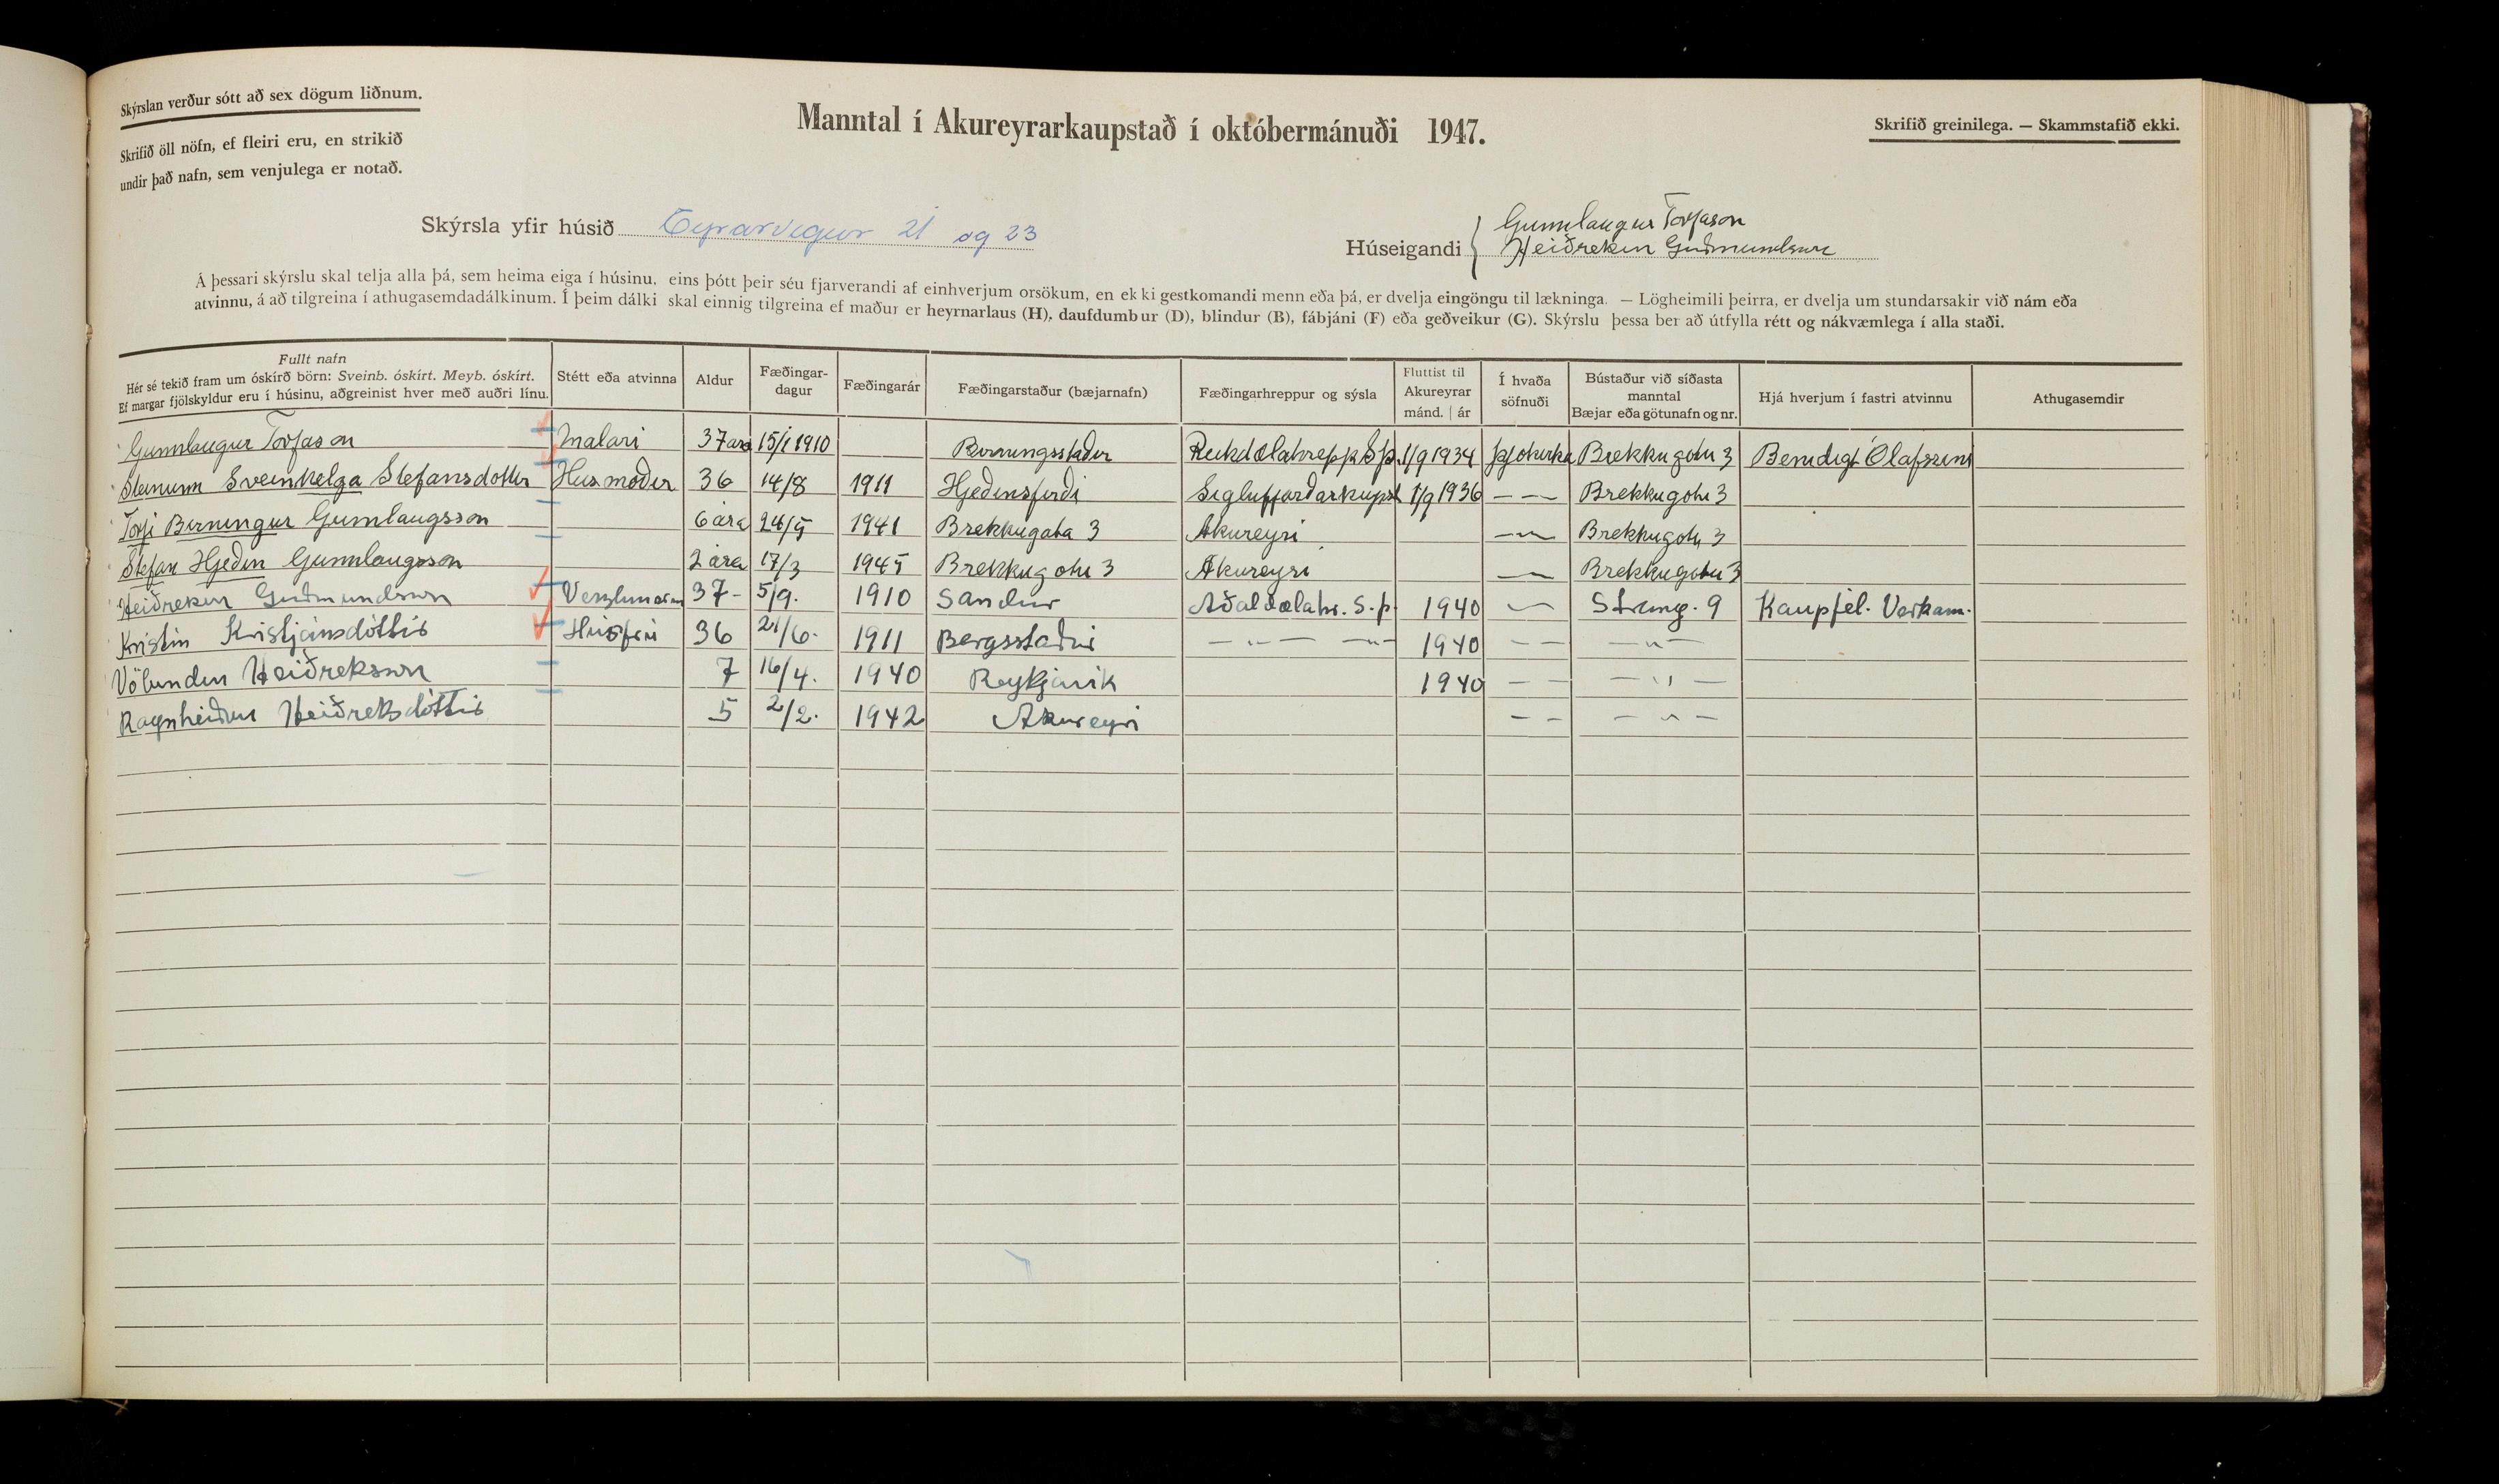 Skýrslan verður sótt að sex dögum liðnum.
Skrifið öll nöfn, ef fleiri eru, en strikið
undir það nafn, sem venjulega er notað.
Manntal í Akureyrarkaupstað í októbermánuði 1947.
Skrifið greinilega. — Skammstafið ekki.
Skýrsla yfir húsið Eyrarvegur 21 og 23
Húseigandi { Gunnlaugur Torfason
Heiðrekur Guðmundsson
Á þessari skýrslu skal telja alla þá, sem heima eiga í húsinu, eins þótt þeir séu fjarverandi af einhverjum orsökum, en ekki gestkomandi menn eða þá, er dvelja eingöngu til lækninga. — Lögheimili þeirra, er dvelja um stundarsakir við nám eða
atvinnu, á að tilgreina í athugasemdadálkinum. Í þeim dálki skal einnig tilgreina ef maður er heyrnarlaus (H), daufdumbur (D), blindur (B), fábjáni (F) eða geðveikur (G). Skýrslu þessa ber að útfylla rétt og nákvæmlega í alla staði.
Fullt nafn
Hér sé tekið fram um óskírð börn: Sveinb. óskírt. Meyb. óskírt.
Ef margar fjölskyldur eru í húsinu, aðgreinist hver með auðri línu.
Stétt eða atvinna
Aldur
Fæðingar-
dagur
Fæðingarár
Fæðingarstaður (bæjarnafn)
Fæðingarhreppur og sýsla
Fluttist til
Akureyrar
mánd. | ár
Í hvaða
söfnuði
Bústaður við síðasta
manntal
Bæjar eða götunafn og nr.
Hjá hverjum í fastri atvinnu
Athugasemdir
Gunnlaugur Torfason Malari 37 ara 15/1 1910 Birningsstaðir Reikdælahrepp S þ. 1/9 1934 þjóðkirkja Brekkugötu 3 Benidigt Ólafssini
Steinunn Sveinhelga Stefansdottir Husmoðir 36 14/8 1911 Hjeðinsfirði Siglufjarðarkupst 1/9 1936 — — Brekkugotu 3
Torfi Birningur Gunnlaugsson 6 ára 24/5 1941 Brekkugata 3 Akureyri — — Brekkugotu 3
Stefan Hjeðin Gunnlaugsson 2 ára 17/3 1945 Brekkugotu 3 Akureyri — Brekkugotu 3
Heiðrekur Guðmundsson Verzlunarm 37 - 5/9. 1910 Sandur Aðaldælahr. S. þ. 1940 — Strang. 9 Kaupfél. Verkam.
Kristín Kristjánsdóttir Húsfrú 36 21/6. 1911 Bergsstaðir — " — — " — 1940 — — — " —
Völundur Heiðreksson 7 16/4. 1940 Reykjavik 1940 — — — " —
Ragnheiður Heiðreksdóttir 5 2/2. 1942 Akureyri — — — " —